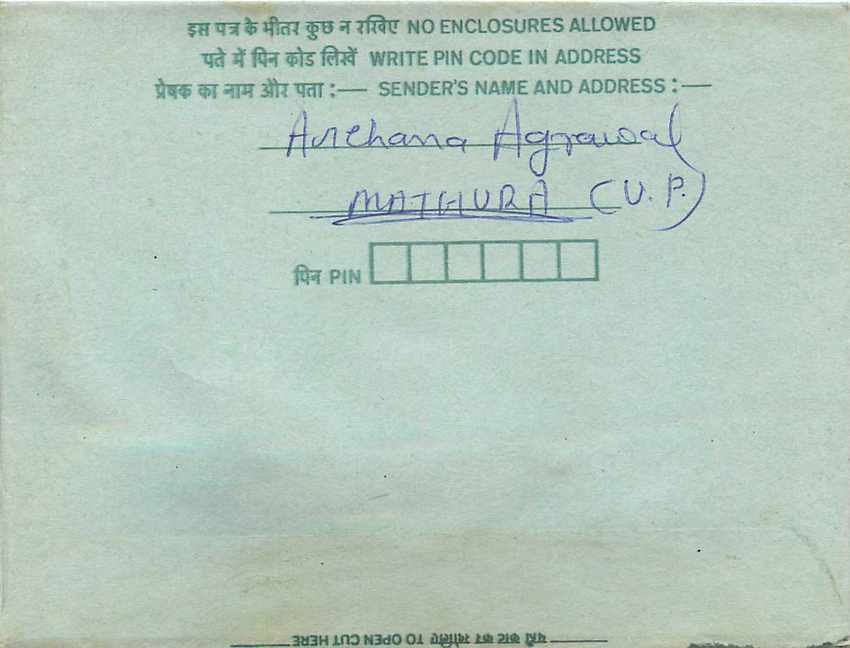 इस पत्र के भीतर कुछ न रखिए NO ENCLOSURES ALLOWED
पते में पिन कोड लिखें WRITE PIN CODE IN ADDRESS
प्रेषक का नाम और पता :— SENDER'S NAME AND ADDRESS :—
Archana Agrawal
MATHURA (U.P.)
पिन PIN
यहां काट कर खोलिए TO OPEN CUT HERE